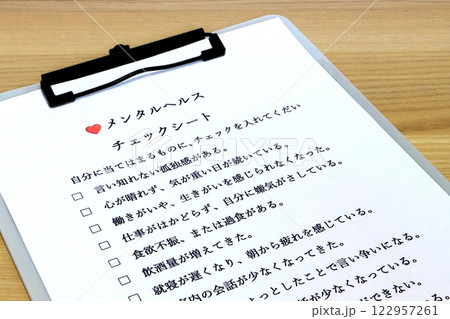 メンタルヘルス
チェックシート
自分に当てはまるものに、チェックを入れてください
言い知れない孤独感がある。
心が晴れず、気が重い日が続いている。
働きがいや、生きがいを感じられなくなった。
仕事がはかどらず、自分に嫌気がさしている。
食欲不振、または過食がある。
飲酒量が増えてきた。
就寝が遅くなり、朝から疲れを感じている。
内の会話が少なくなってきた。
っとしたことで言い争いになる。
が少なくなっている。
ができない。
PIXTA
pixta.jp - 122957261